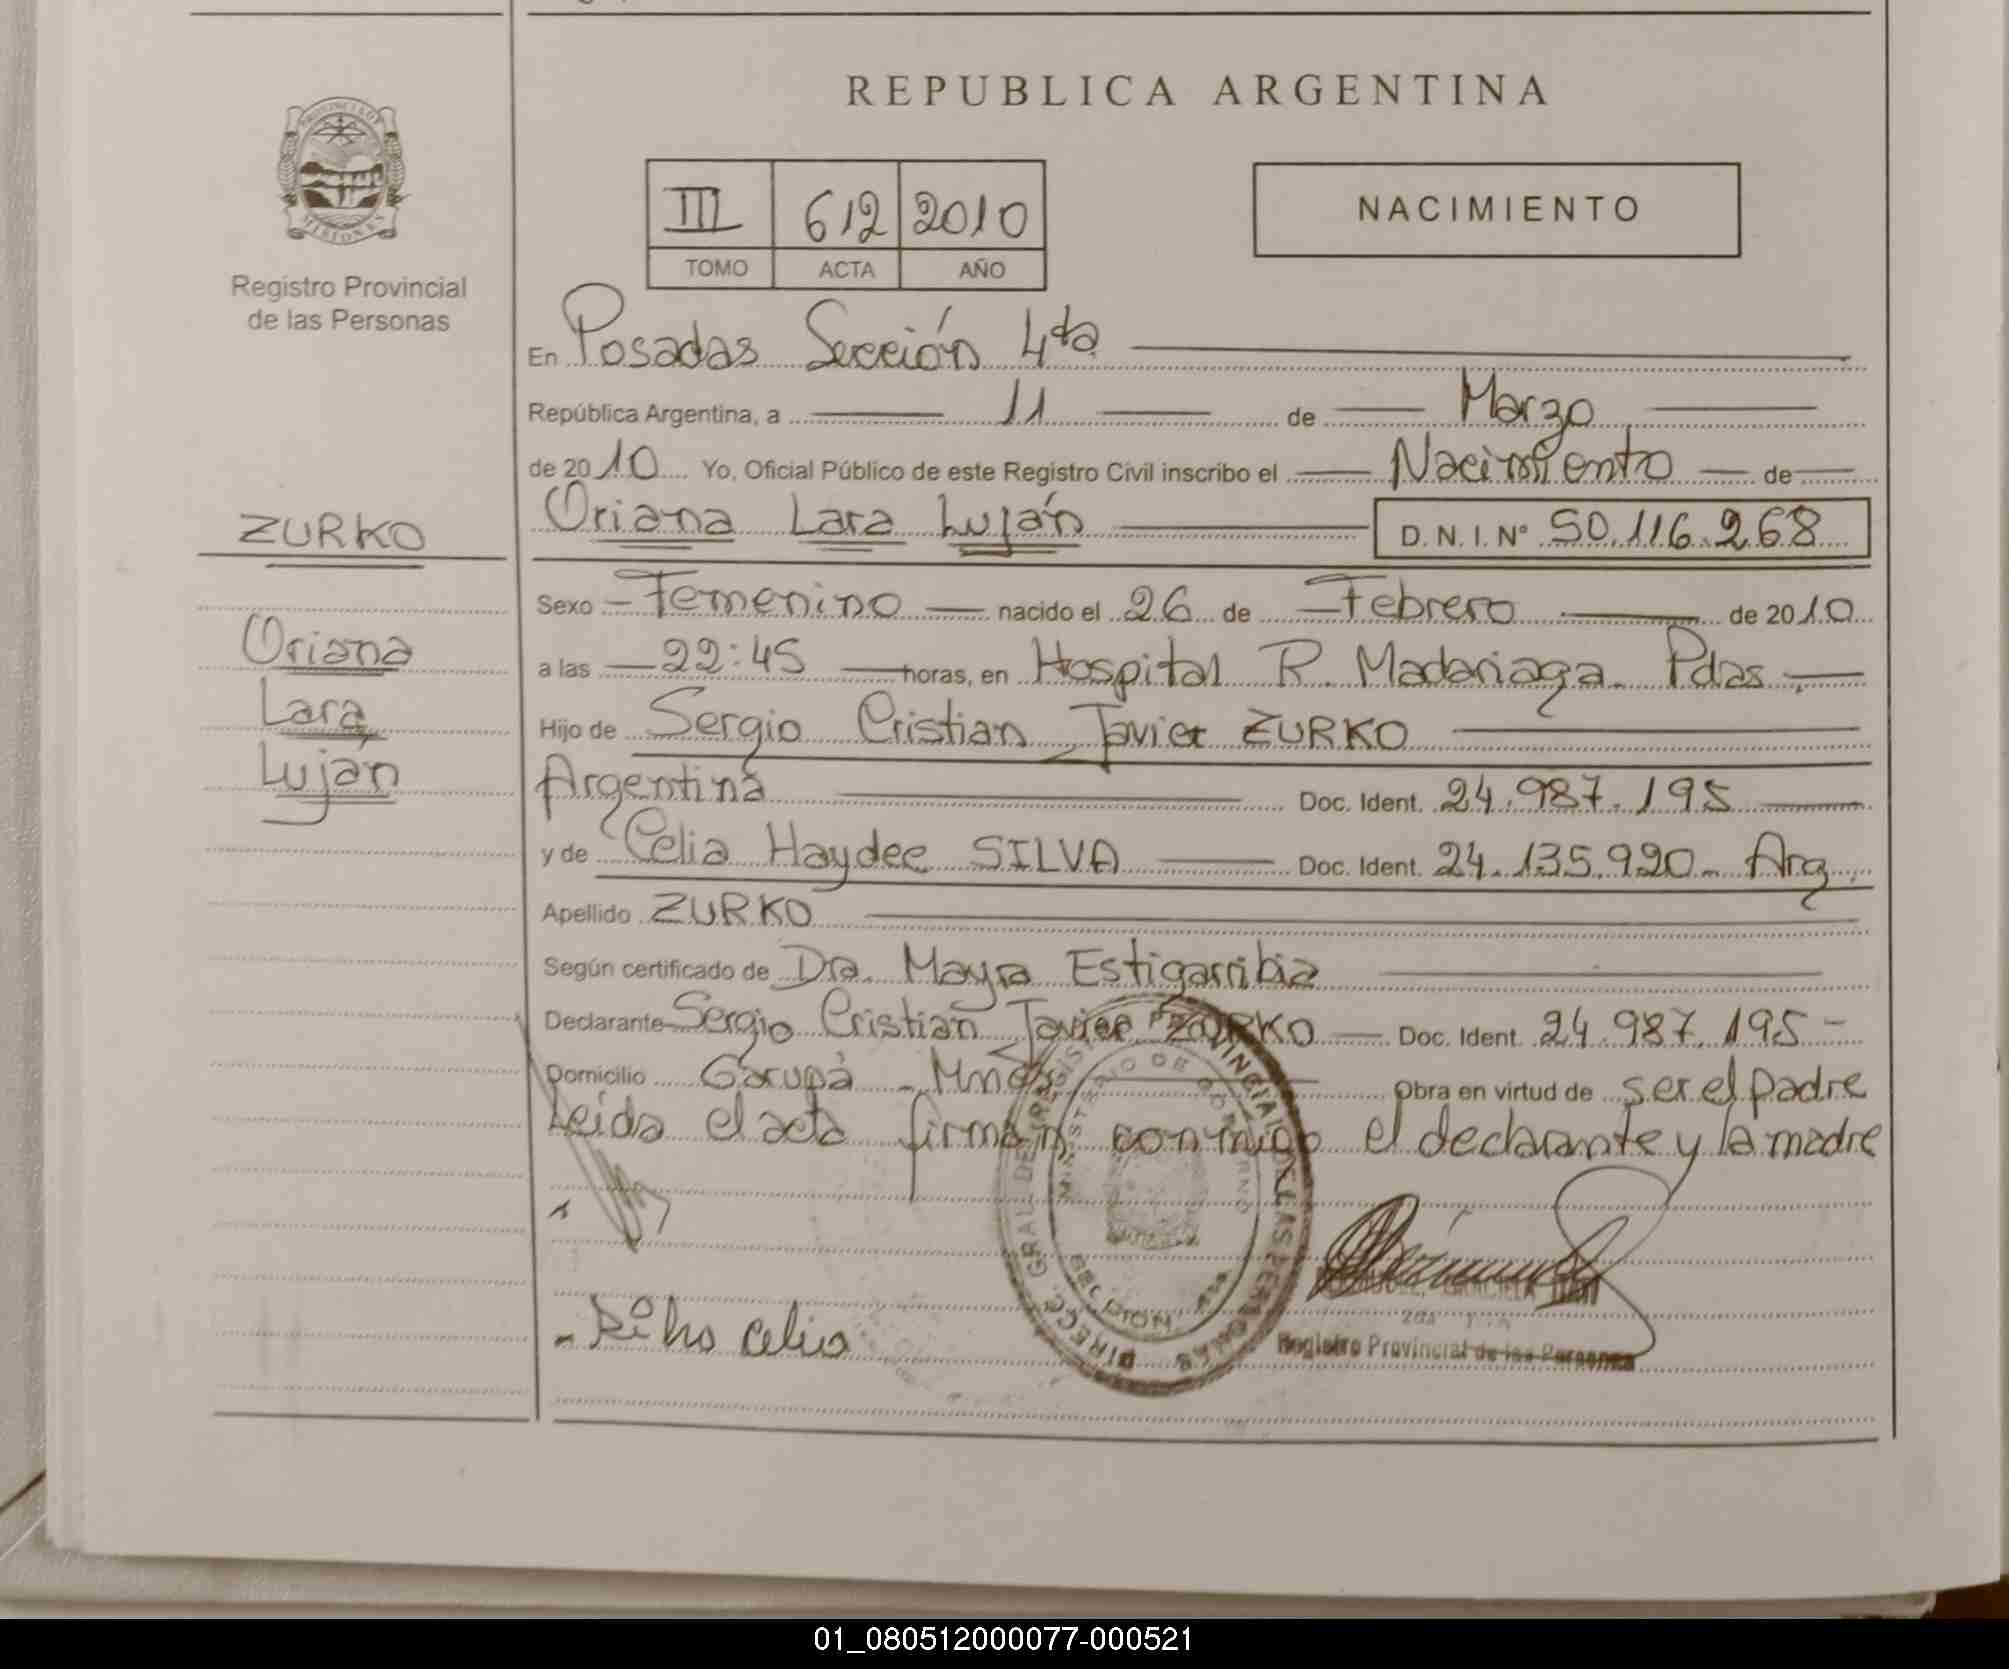 REPUBLICA ARGENTINA
PROVINCIA DE
MISIONES
Registro Provincial
de las Personas
III 612 2010
TOMO ACTA AÑO
NACIMIENTO
En Posadas Sección 4ta
República Argentina, a 11 de Marzo
de 2010 Yo, Oficial Público de este Registro Civil inscribo el Nacimiento de
ZURKO
Oriana Lara Luján D.N.I. Nº 50.116.268
Sexo Femenino nacido el 26 de Febrero de 2010
Oriana
Lara
Luján
a las 22:45 horas, en Hospital R. Madariaga. Pdas
Hijo de Sergio Cristian Javier ZURKO
Argentina Doc. Ident. 24.987.195
y de Celia Haydee SILVA Doc. Ident. 24.135.920 - Arg.
Apellido ZURKO
Según certificado de Dra. Mayra Estigarribia
Declarante Sergio Cristian Javier ZURKO Doc. Ident. 24.987.195 -
Domicilio Garupá - Mnes Obra en virtud de ser el padre
Leida el acta firman conmigo el declarante y la madre
DIRECC. GRAL. DE REGISTRO PROVINCIAL DE LAS PERSONAS
MINISTERIO DE GOBIERNO
GRACIELA
Registro Provincial de las Personas
01_080512000077-000521